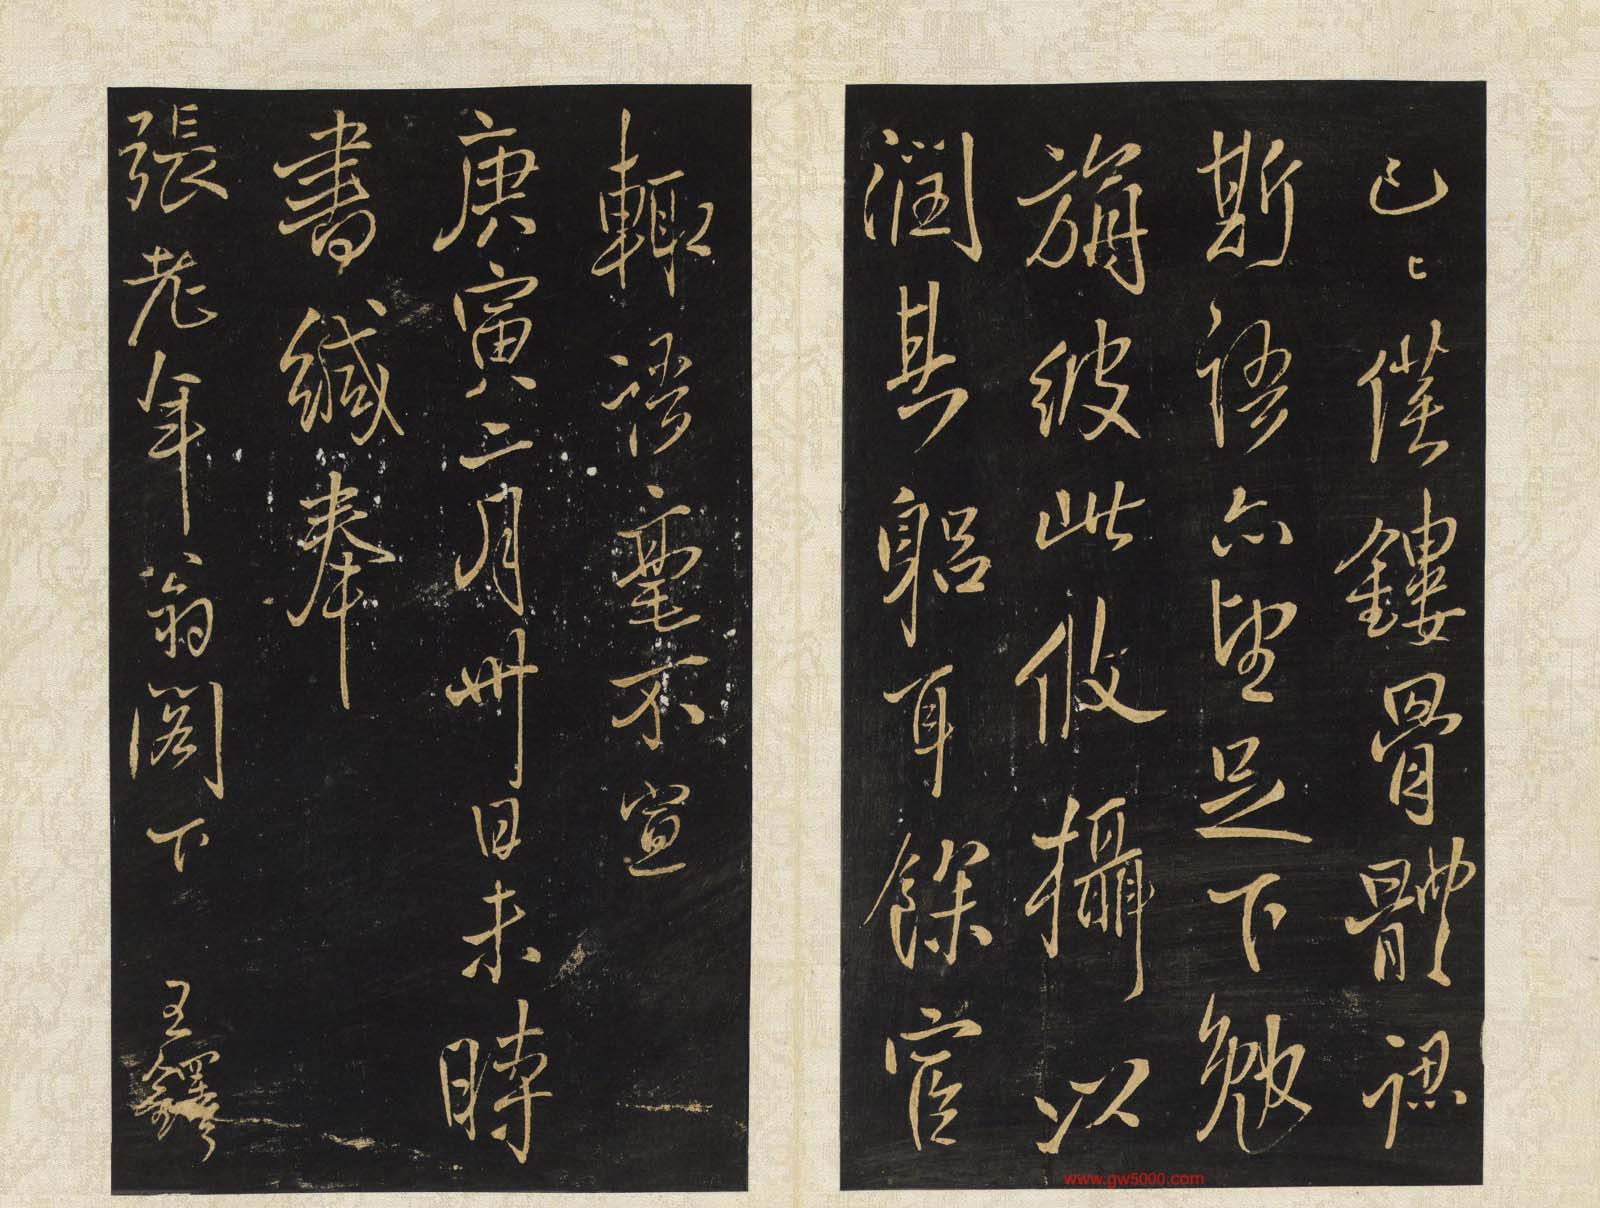 已〻僕鏤骨體認
斯語亦望足下勉
旃彼此攸攝以
潤其躬耳餘官
輒語毫不宣
庚寅二月卅日未時
書緘奉
張老年翁閣下 王鐸
www.gw5000.com